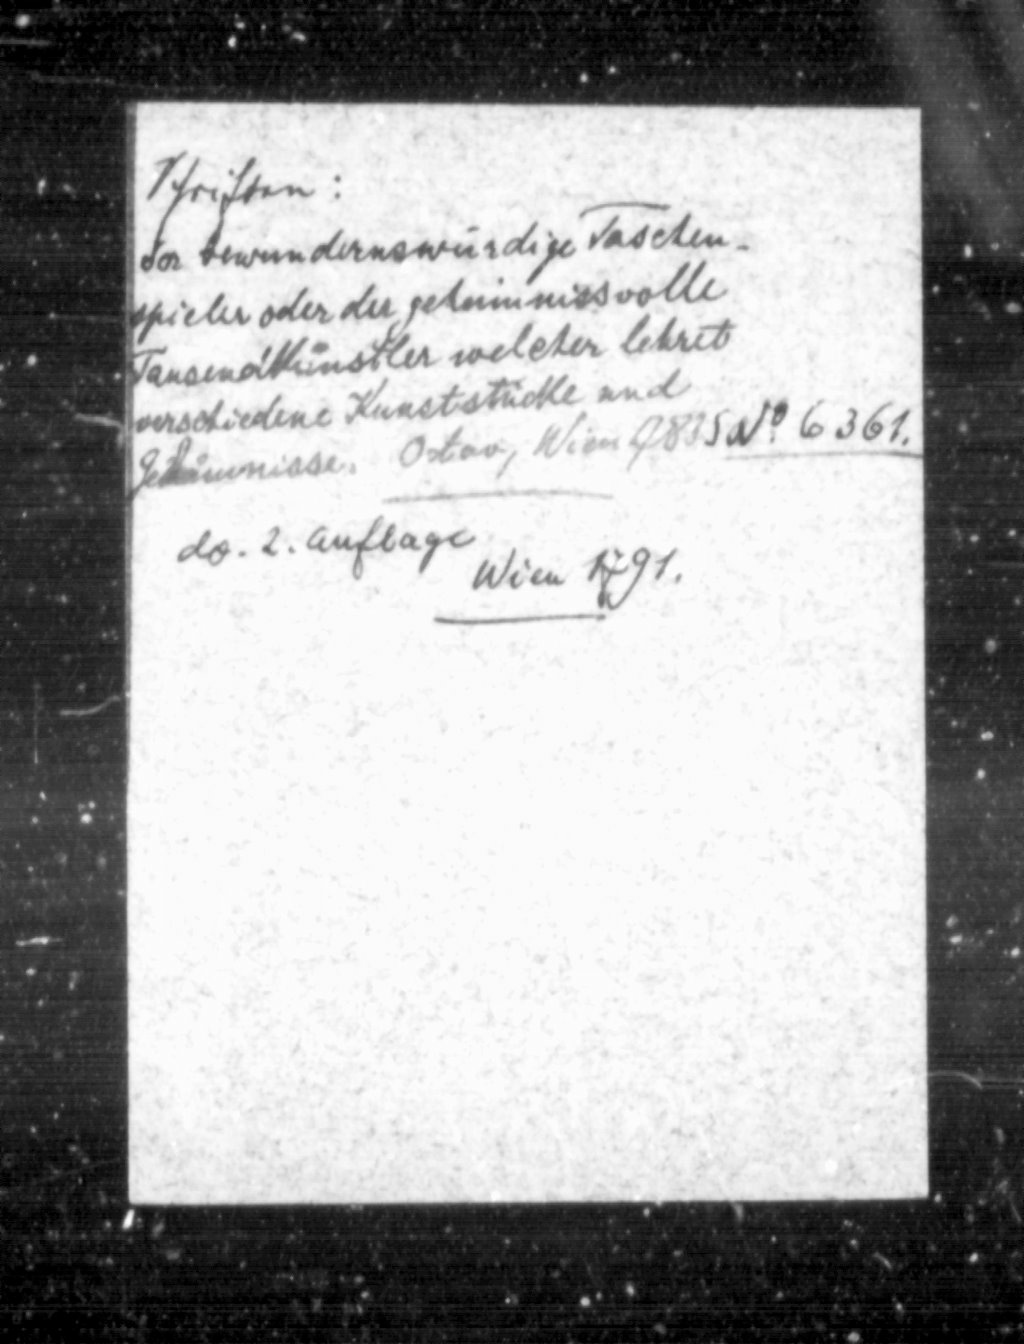 Schriften:
der bewundernswürdige Taschen-
spieler oder der geheimnissvolle
Tausendkünstler welcher lehret
verschiedene Kunststücke und
Geheimnisse. Octav, Wien No 6361.
do. 2. Auflage
Wien 1791.